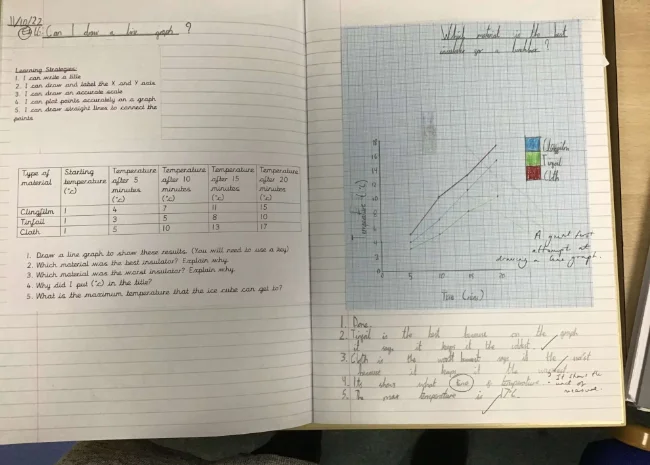 11/10/22
Can I draw a line graph ?
Learning Strategies:
1. I can write a title
2. I can draw and label the X and Y axis
3. I can draw an accurate scale
4. I can plot points accurately on a graph
5. I can draw straight lines to connect the
points
Type of material Starting temperature (°c) Temperature after 5 minutes (°c) Temperature after 10 minutes (°c) Temperature after 15 minutes (°c) Temperature after 20 minutes (°c)
Clingfilm 1 4 7 11 15
Tinfoil 1 3 5 8 10
Cloth 1 5 10 13 17
1. Draw a line graph to show these results. (You will need to use a key)
2. Which material was the best insulator? Explain why.
3. Which material was the worst insulator? Explain why.
4. Why did I put (°c) in the title?
5. What is the maximum temperature that the ice cube can get to?
Which material is the best
insulator for a lunchbox ?
Clingfilm
Tinfoil
Cloth
5 10 15 20
Time (mins)
A great first
attempt at
drawing a line graph.
1. Done
2. Tinfoil is the best because on the graph
it says it keeps it the coldest
3. Cloth is the worst
because it keeps it the
4. It shows what temperature
It shows the
unit of
measure.
5. The max temperature is